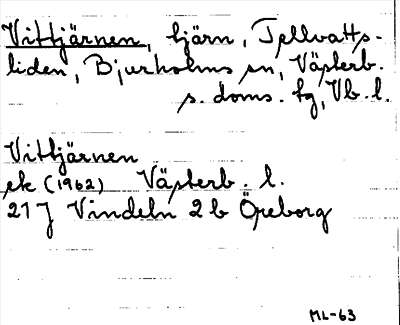 Vittjärnen, tjärn, Tellvatts-
liden, Bjurholms sn, Västerb.
s. doms. tg, Vb. l.
Vittjärnen
ek (1962) Västerb. l.
21 J Vindeln 2 b Öreborg
ML-63